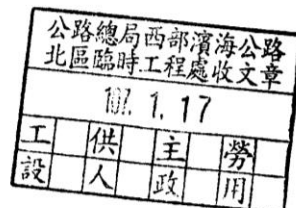 公路總局西部濱海公路
北區臨時工程處收文章
107. 1. 17
工 供 主 勞
設 人 政 用